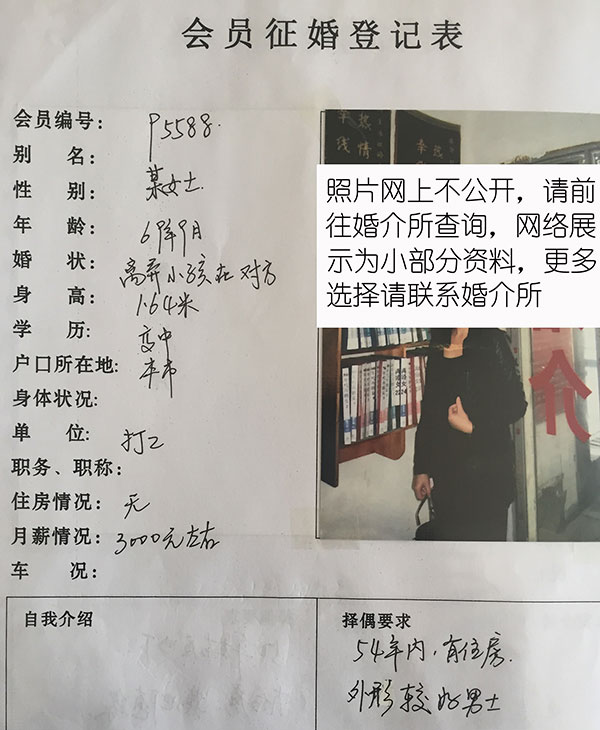 会员征婚登记表
会员编号: P5588.
别 名:
性 别: 某女士.
年 龄: 61年9月
婚 状: 离异小孩在对方
身 高: 1.64米
学 历: 高中
户口所在地: 本市
身体状况:
单 位: 打工
职务、职称:
住房情况: 无
月薪情况: 3000元左右
车 况:
热情
照片网上不公开，请前
往婚介所查询，网络展
示为小部分资料，更多
选择请联系婚介所
介
自我介绍
择偶要求
54年内，有住房.
外形较好男士